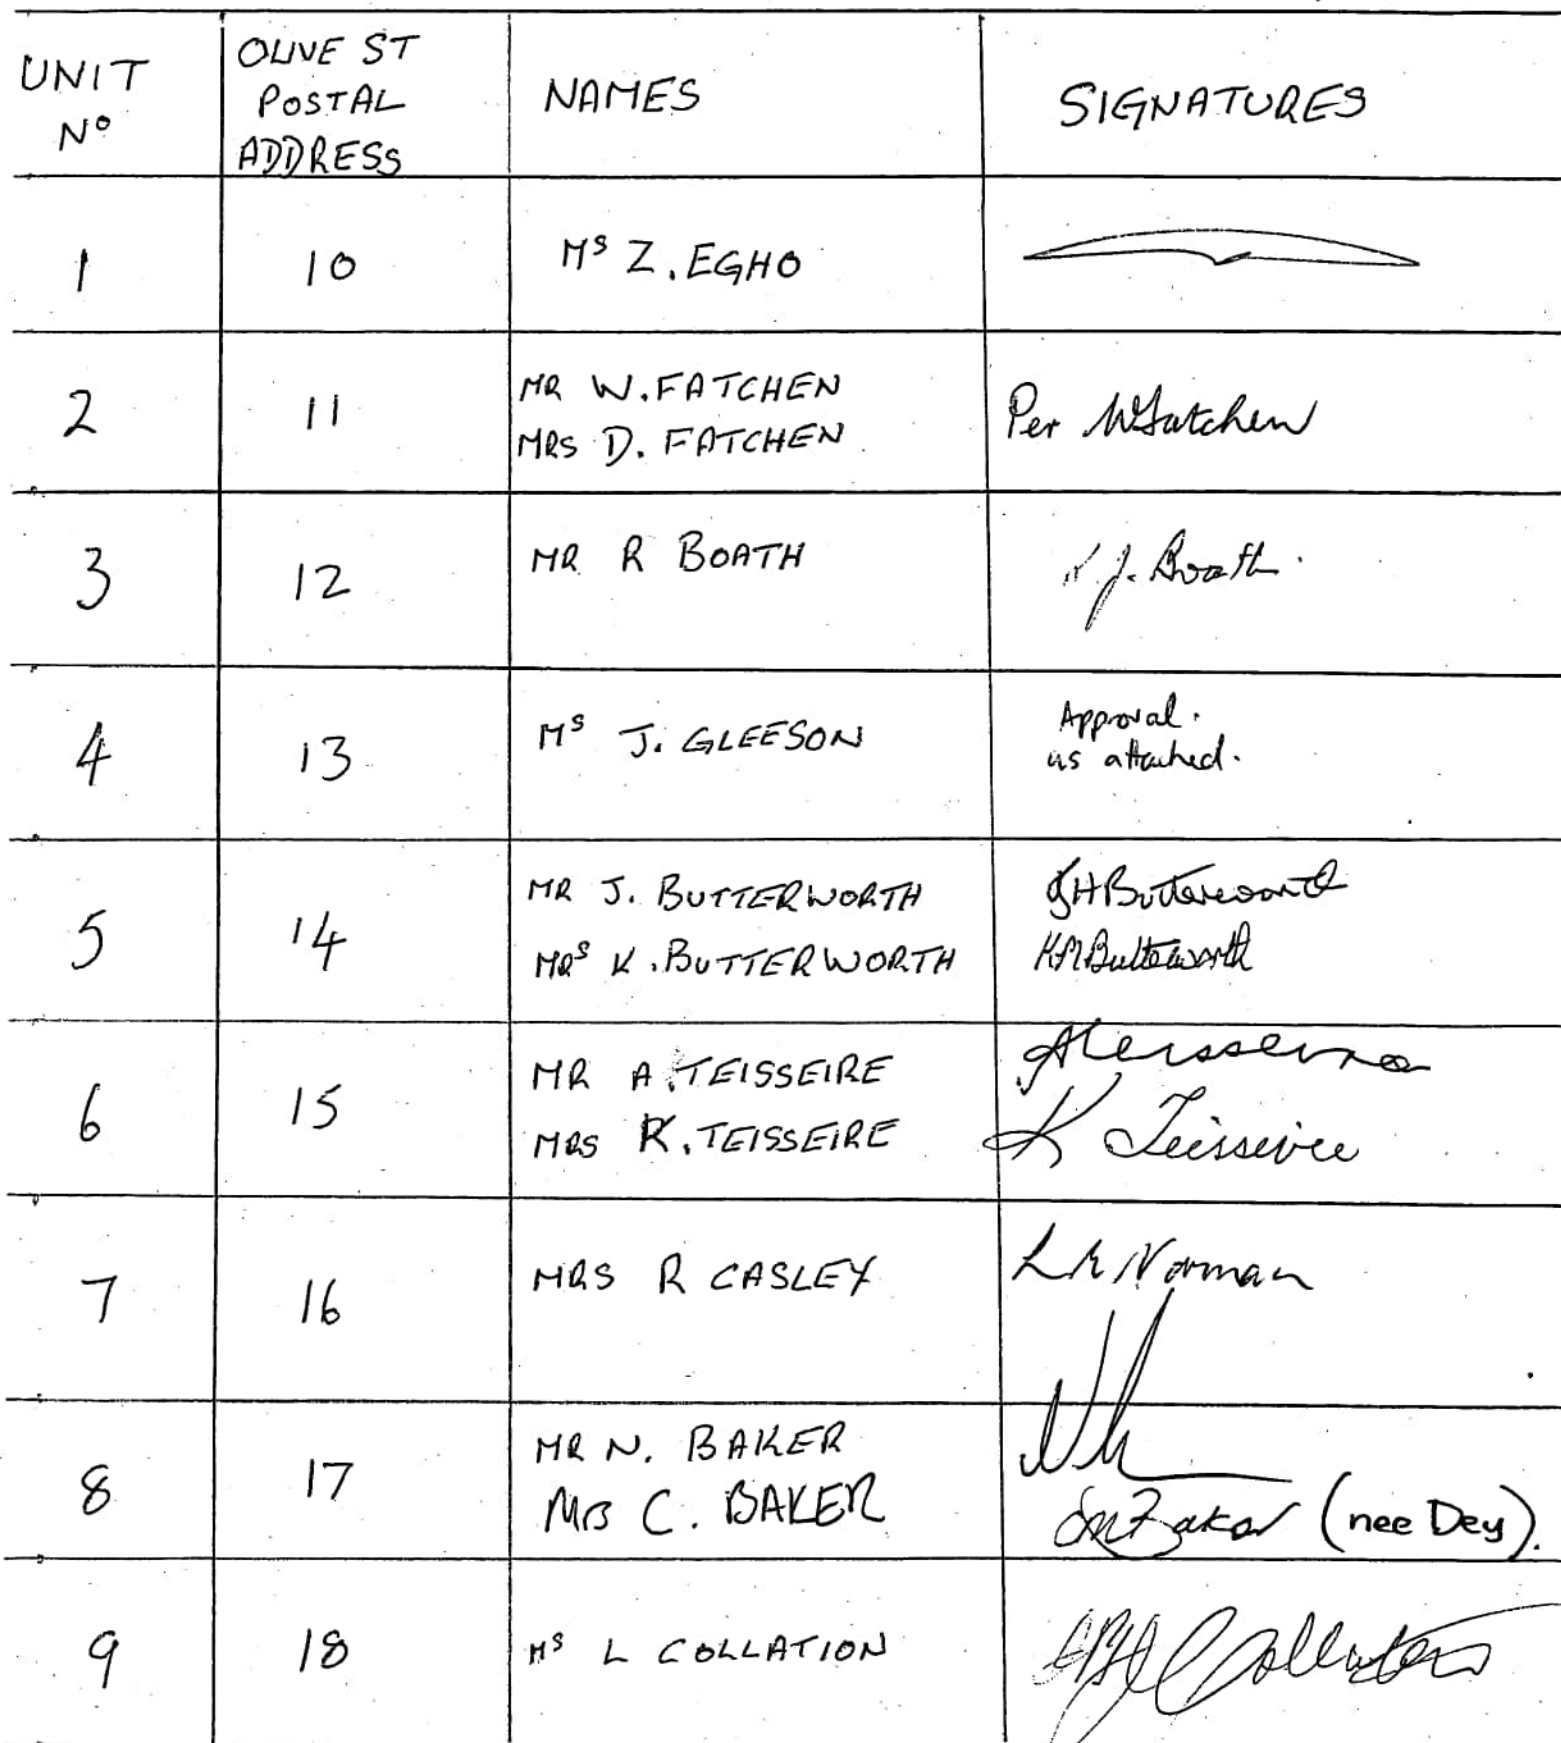 UNIT Nº
OLIVE ST POSTAL ADDRESS
NAMES
SIGNATURES
1 10 Ms Z. EGHO
2 11 MR W. FATCHEN
MRS D. FATCHEN
Per W Fatchen
3 12 MR R BOATH
J. Boath.
4 13 Ms J. GLEESON
Approval.
as attached.
5 14 MR J. BUTTERWORTH
JHButterworth
MRS K. BUTTERWORTH
KMButterworth
6 15 MR A. TEISSEIRE
ATeisseire
MRS K. TEISSEIRE
K Teisseire
7 16 MRS R CASLEY
Norman
8 17 MR N. BAKER
MRS C. BAKER
Baker (nee Dey).
9 18 Ms L COLLATION
Collation